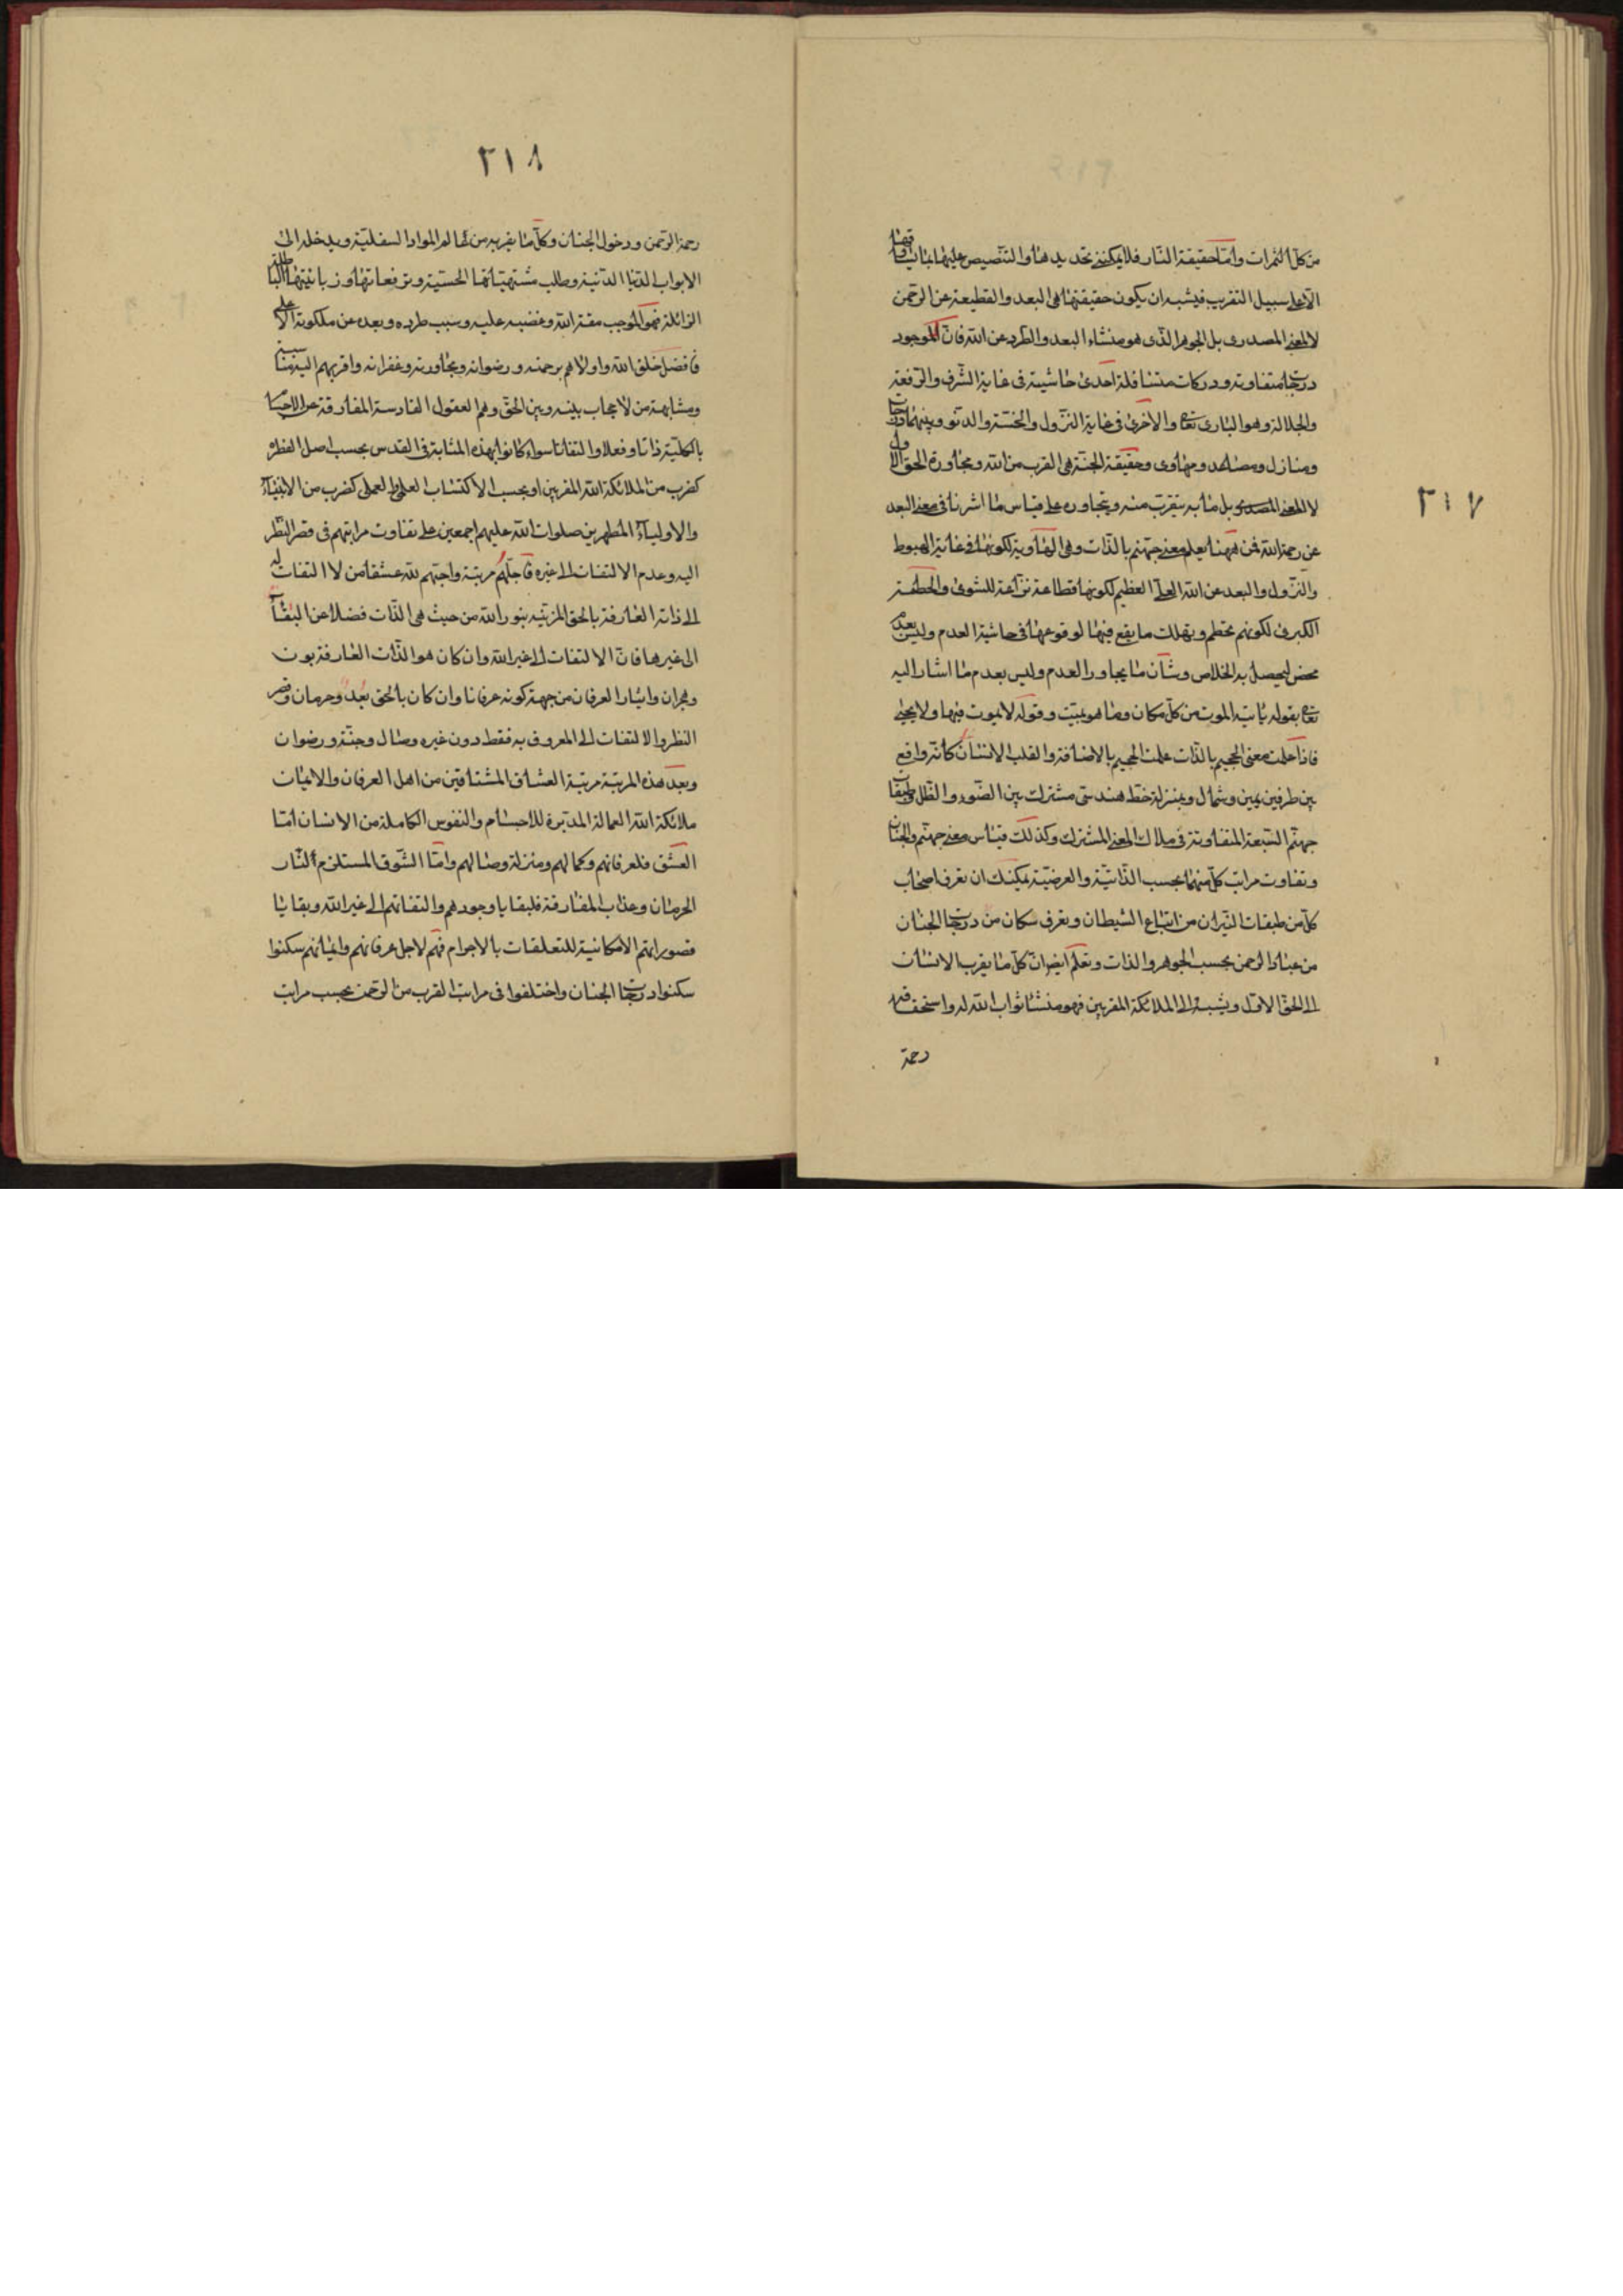 ٢١٧
من كل الثمرات وامّا حقيقة النّار فلا يمكننى تحديدها والتنّصيص عليها بما
الّا على سبيل التقريب فيشبه ان يكون حقيقتها هى البعد والقطيعة عن الرحمن
لا المعنى المصدرى بل الجوهر الّذى هو منشاء البعد والطّرد عن الله فانّ الموجود
درجات متفاوتة ودركات متسافلة احدى حاشيته فى غاية الشّرف والرّفعة
والجلالة وهو البارى تعا والاخرى فى غاية النزول والخسّة والدنّو وبينهما درجات
ومنازل ومصاعد ومهاوى وحقيقة الجنّة هى القرب من الله ومجاورة الحق الاول
لا المعنى المصدرى بل ما به يتقرّب منه ويتجاوره على قياس ما اشرنا فى معنى البعد
عن رحمة الله فمن ههنا يعلم معنى جهنّم بالذّات وهى الهاوية لكونها فى غاية الهبوط
والنّزول والبعد عن الله العلىّ العظيم لكونها قطاعة نزّاعة للشوى والحطمة
الكبرى لكونهم تحطم ويهلك ما يقع فيها لوقوعها فى حاشية العدم وليس بعدم
محض ليحصل به الخلاص وشأن ما يجاور العدم وليس بعدم ما اشار اليه
تعا بقوله يأتيه الموت من كلّ مكان وما هو بميّت وقوله لا يموت فيها ولا يحيى
فاذا علمت معنى الجحيم بالذّات علمت الجحيم بالاضافة والقلب الانسان كانّه واقع
بين طرفين يمين وشمال وبمنزلة خط هندسى مشترك بين الضّوء والظّل وطبقات
جهنّم السّبعة المتفاوتة فى ملاك المعنى المشترك وكذلك قياس معنى جهنّم والجنان
وتفاوت مراتب كلّ منهما بحسب الذّاتيّة والعرضيّة يمكنك ان تعرف اصحاب
كلّ من طبقات النّيران من اتباع الشيطان وتعرف سكان من درجات الجنان
من عباد الرحمن بحسب الجوهر والذات وتعلم ايضا انّ كلّ ما يقرب الانسان
الى الحقّ الاوّل ويشبهه الى الملائكة المقربين فهو منشأ ثواب الله له واستحقاقه
رحمة
٢١٨
رحمة الرّحمن ودخول الجنان وكلّ ما يقربه من عالم المواد السفليّة ويدخله الى
الابواب الدنيا الدنيّة وطلب مشتهياتها الحسّية وترفعاتها وزبانيتها
الزائلة فهو الموجب مقت الله وغضبه عليه وسبب طرده وبعده عن ملكوته الاعلى
فافضل خلق الله واولاهم برحمته ورضوانه ومجاورته وغفرانه واقربهم اليه
ومشابهة من لا حجاب بينه وبين الحقّ وهم العقول القادسة المفارقة عن الاجسام
بالكليّة ذاتا وفعلا والتفاتا سواء كانوا بهذه المثابة فى القدس بحسب اصل الفطرة
كضرب من الملائكة الله المقربين او بحسب الاكتساب العلمى والعملى كضرب من الانبياء
والاولياء المطهرين صلوات الله عليهم اجمعين على تفاوت مراتبهم فى قصر النّظر
اليه وعدم الالتفات الى غيره فاجلّهم مرتبة واحبّهم لله عشقا من لا التفات له
الى ذاته العارفة بالحق المزيّنه بنور الله من حيث هى الذّات فضلا عن
الى غيرها فانّ الالتفات الى غير الله وان كان هو الذّات العارفة بون
وهجران وايثار العرفان من جهة كونه عرفانا وان كان بالحق بعد وحرمان وقصر
النظر والالتفات الى المعروف به فقط دون غيره وصال وجنّة ورضوان
وبعد هذه المرتبة مرتبة العشاق المشتاقين من اهل العرفان والايمان
ملائكة الله العمالة المدبّرة للاجسام والنفوس الكاملة من الانسان امّا
العشق فلعرفانهم وكمالهم ومنزلة وصالهم وامّا الشّوق المستلزم النّار
الحرمان وعذاب المفارقة فلبقايا وجودهم والتفاتهم الى غير الله وبقايا
قصوراتهم الامكانية للتعلقات بالاجرام فهم لاجل عرفانهم وايمانهم سكنوا
سكنوا درجات الجنان واختلفوا فى مراتب القرب من الرّحمن بحسب مراتب